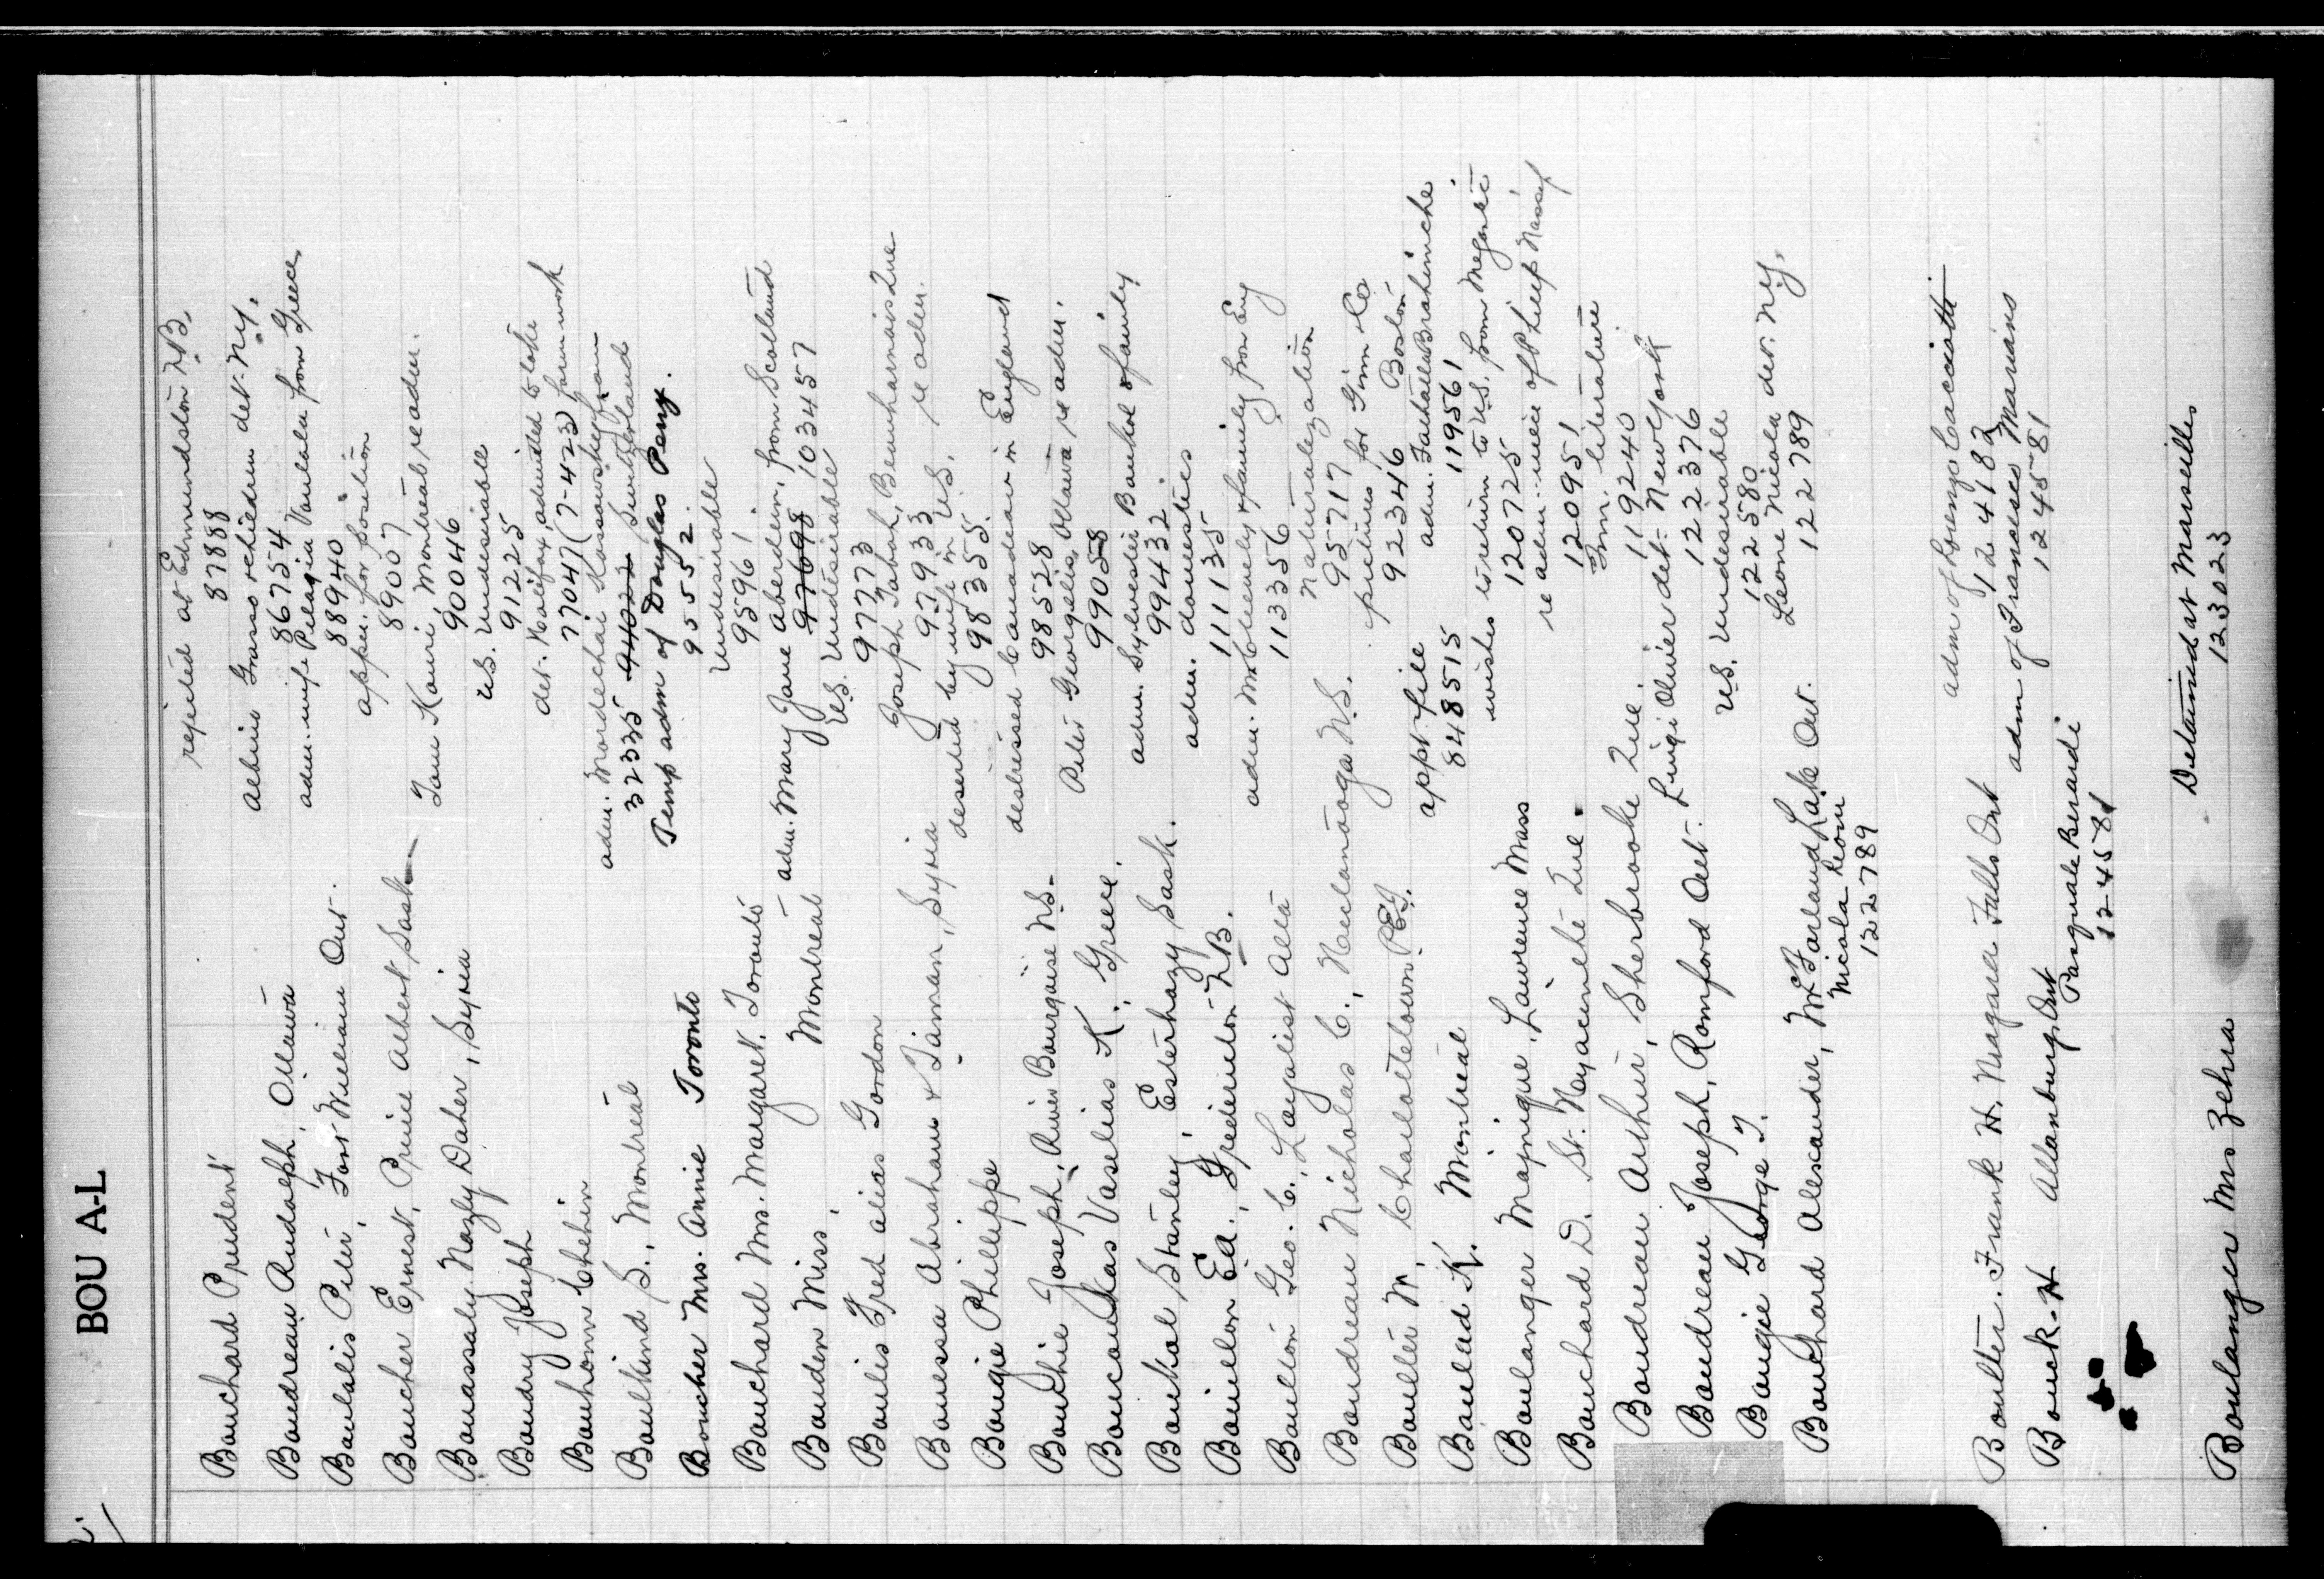 BOU A-L
Bouchard Prudent rejected at Edmundston N.B.
87888
Boudreau Rudolph, Ottawa Albino Grasso & children det. N.Y.
86754
Boulalis Peter, Fort William Ont. adm. wife Pelagia Vaulalu from Greece
88940
Boucher Ernest, Prince Albert Sask appln. for position
89007
Bouassaly Nazly Daher, Syria Tom Kouri, Montreal re adm.
90046
Boudry Joseph U.S. Undesirable
91225
Bouhonn Chehin det. Halifax, admitted to take
77041 (7-423) farm work
Boulkind S., Montreal adm. Mordechai Kassowsky from
32335 94022 Switzerland
Boucher Mrs. Annie Toronto Temp adm of Douglas Perry.
95552
Bouchard Mrs. Margaret, Toronto Undesirable
95961
Bouden Miss, Montreal adm. Mary Jane Aberdein, from Scotland
97698 103457
Boulis Fred alias Gordon U.S. Undesirable
97773
Bouessa Abraham & Taiman, Syria Joseph Tabah, Beauharnois Que
97933
Bougie Phillippe deserted by wife in U.S. re adm.
98355
Bouchie Joseph, River Bourgeoise N.S. distressed Canadian in England
98528
Boucoukas Vaselias K., Greece. Peter Georgelis, Ottawa re adm.
99058
Boukal Stanley, Esterhazy Sask. adm. Sylvester Boukal & family
99432
Bouillon Ed., Fredericton N.B. adm. domestics
111135
Boulton Geo. C., Loyalist Alta adm. Mr & family from Eng
113356
Boudreau Nicholas C., N.S. Naturalization
95717
Boulter M., Charlottetown P.E.I. pictures for Ginn & Co
92346 Boston
Boulad K. Montreal appt. file adm. Brahimche
848515 119561
Boulanger Majorique, Lawrence Mass wishes to return to U.S. from Megantic
120725
Bouchard D. St. Hyacinthe Que. re adm. niece of Philip Nassif
120951
Boudreau Arthur, Sherbrooke Que. Imm. literature
119240
Boudreau Joseph, Romford Ont. Luigi Olivier det. New York
122376
Bougie George T. U.S. Undesirable
122580
Bouchard Alexander, McFarland Lake Ont. Leone Nicola det. N.Y.
Nicola Leone 122789
122789
Boulter Frank H. Niagara Falls Ont adm of Lorenzo Cacciotti
124182
Bouck H Allanburg Ont adm of Francesco Mariano
Pasquale Berardi 124581
124581
Boulanger Mrs Zehra Detained at Marseilles
123023